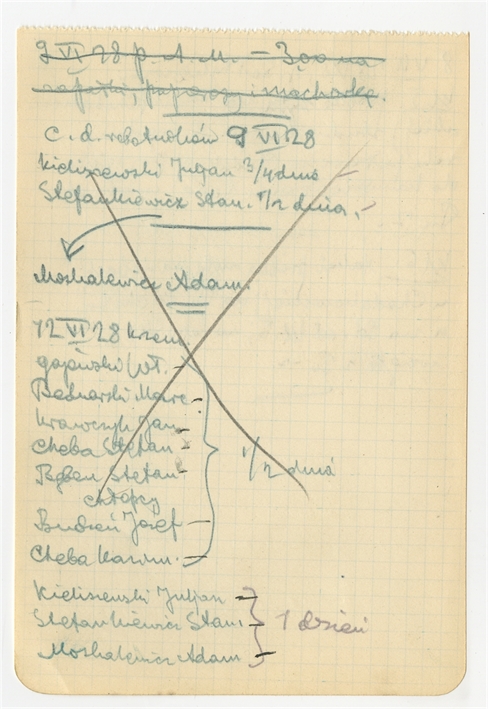 9 VI 28 p. A. M. – 3,00 na
zapałki, papierosy i machorkę.
c. d. robotników 9 VI 28
Kieliszewski Juljan 3/4 dnia –
Stefankiewicz Stan. 1/2 dnia, –
Moskalewicz Adam.
12 VI 28 krzem.
Gajewski Wł. –
Bednarski Marc –
Krawczyk Jan –
Cheba Stefan –
Stefan –
chłopcy
Józef –
Cheba Kazim. –
1/2 dnia
Kieliszewski Juljan –
Stefankiewicz Stan –
Moskalewicz Adam –
1 dzień